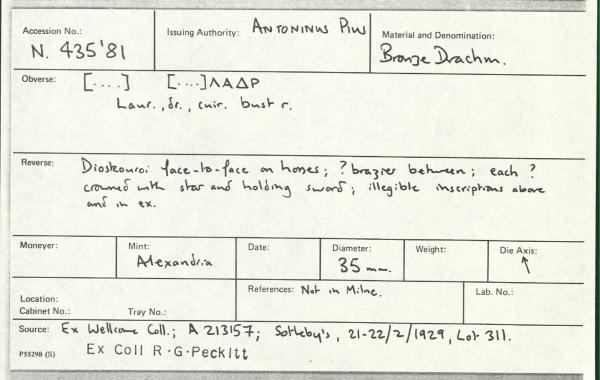 Accession No.:
N. 435'81
Issuing Authority: ANTONINUS PIUS
Material and Denomination:
Bronze Drachm.
Obverse: [....] [....]ΛΑΔΡ
Laur., dr., cuir. bust r.
Reverse: Dioskouroi face-to-face on horses; ? brazier between; each ?
crowned with star and holding sword; illegible inscriptions above
and in ex.
Moneyer:
Mint:
Alexandria
Date:
Diameter:
35 mm.
Weight:
Die Axis:
↖
Location:
Cabinet No.: Tray No.:
References: Not in Milne.
Lab. No.:
Source: Ex Wellcome Coll.; A 213157; Sotheby's, 21-22/2/1929, Lot 311.
P55298 (S) Ex Coll R·G·Peckitt